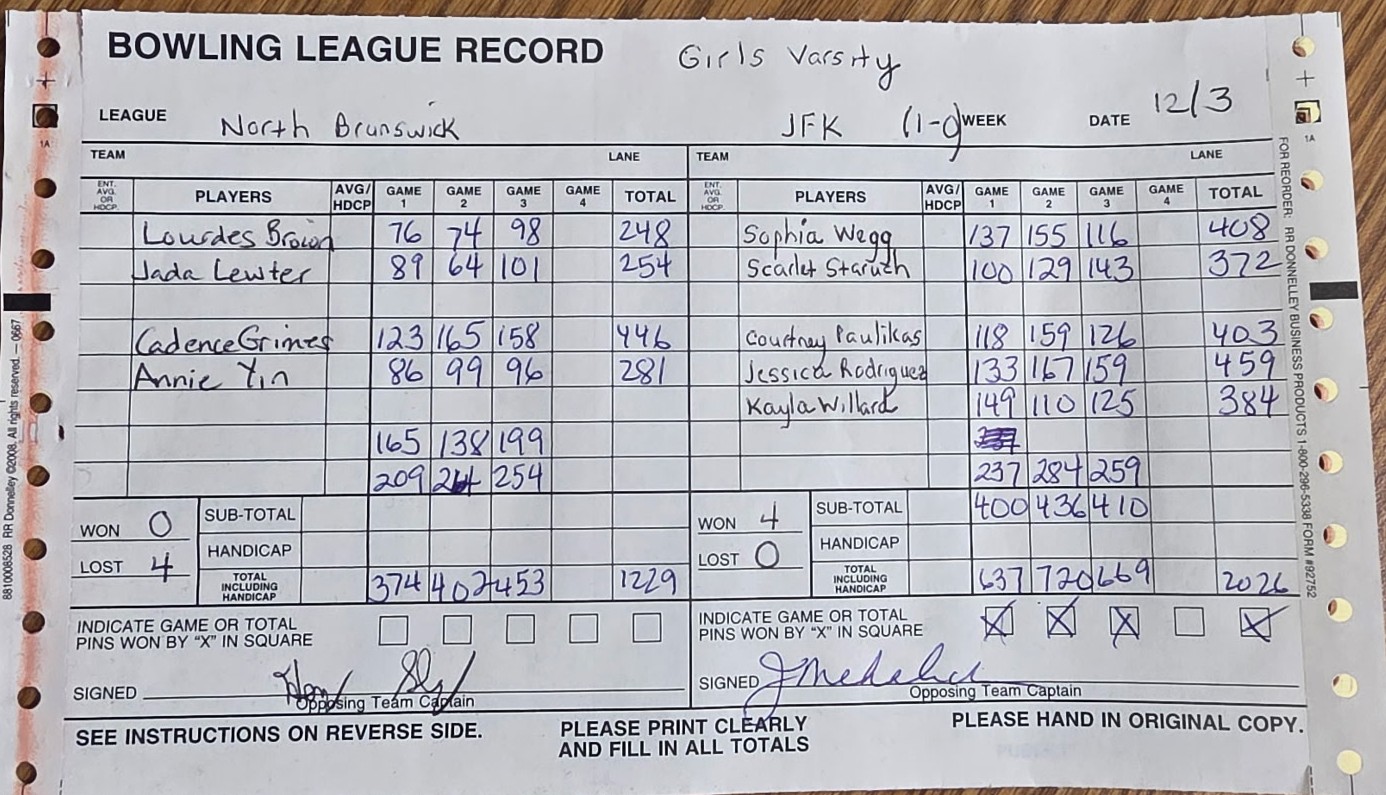 BOWLING LEAGUE RECORD Girls Varsity
LEAGUE North Brunswick JFK (1-0) WEEK DATE 12/3
TEAM LANE TEAM LANE
ENT. AVG. OR HDCP. PLAYERS AVG/HDCP GAME 1 GAME 2 GAME 3 GAME 4 TOTAL ENT. AVG. OR HDCP. PLAYERS AVG/HDCP GAME 1 GAME 2 GAME 3 GAME 4 TOTAL
Lourdes Brown 76 74 98 248 Sophia Wegg 137 155 116 408
Jada Lewter 89 64 101 254 Scarlet Staruch 100 129 143 372
Cadence Grimes 123 165 158 446 Courtney Paulikas 118 159 126 403
Annie Yin 86 99 96 281 Jessica Rodriguez 133 167 159 459
Kayla Willard 149 110 125 384
165 138 199
209 254 237 284 259
WON 0 SUB-TOTAL WON 4 SUB-TOTAL 400 436 410
LOST 4 HANDICAP LOST 0 HANDICAP
TOTAL INCLUDING HANDICAP 374 402 453 1229 TOTAL INCLUDING HANDICAP 637 720 669 2026
INDICATE GAME OR TOTAL INDICATE GAME OR TOTAL
PINS WON BY "X" IN SQUARE PINS WON BY "X" IN SQUARE X X X X
SIGNED SIGNED
Opposing Team Captain Opposing Team Captain
SEE INSTRUCTIONS ON REVERSE SIDE. PLEASE PRINT CLEARLY PLEASE HAND IN ORIGINAL COPY.
AND FILL IN ALL TOTALS
8810008528 RR Donnelley ©2008. All rights reserved. — 0667
FOR REORDER: RR DONNELLEY BUSINESS PRODUCTS 1-800-296-5338 FORM #92752
1A
1A